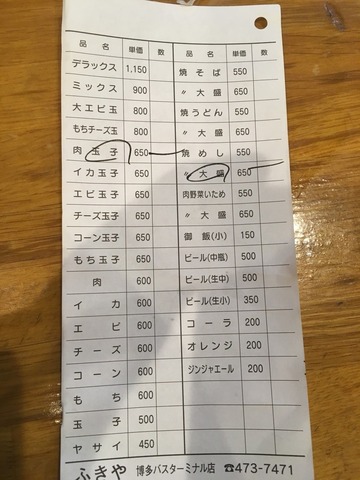 品名 単価 数 品名 単価 数
デラックス 1,150 焼そば 550
ミックス 900 〃大盛 650
大エビ玉 800 焼うどん 550
もちチーズ玉 800 〃大盛 650
肉玉子 650 焼めし 550
イカ玉子 650 〃大盛 650
エビ玉子 650 肉野菜いため 550
チーズ玉子 650 〃大盛 650
コーン玉子 650 御飯(小) 150
もち玉子 650 ビール(中瓶) 550
肉 600 ビール(生中) 500
イカ 600 ビール(生小) 350
エビ 600 コーラ 200
チーズ 600 オレンジ 200
コーン 600 ジンジャエール 200
もち 600
玉子 500
ヤサイ 450
ふきや 博多バスターミナル店 ☎473-7471